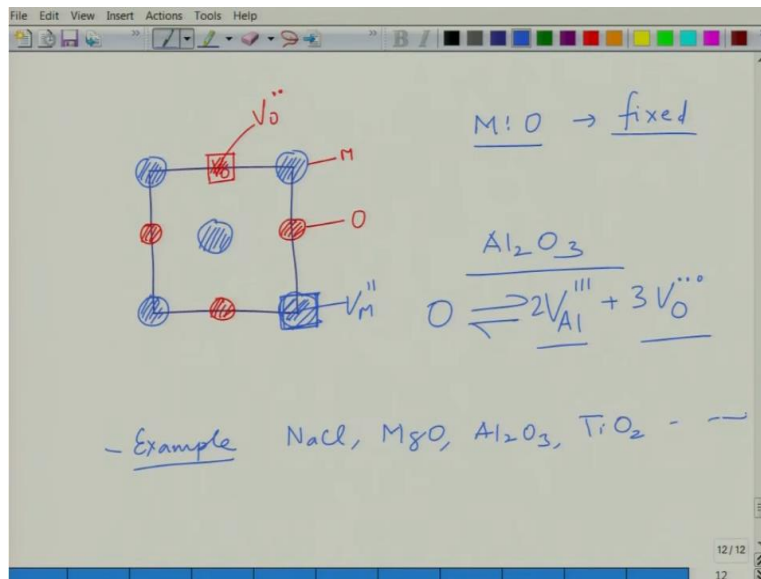 File Edit View Insert Actions Tools Help
B I
V_O^{••}
M:O → fixed
M
V_O
O
Al₂O₃
V_M^{||}
O ⇌ 2V_{Al}^{|||} + 3V_O^{•••}
- Example NaCl, MgO, Al₂O₃, TiO₂ - —
12/12
12